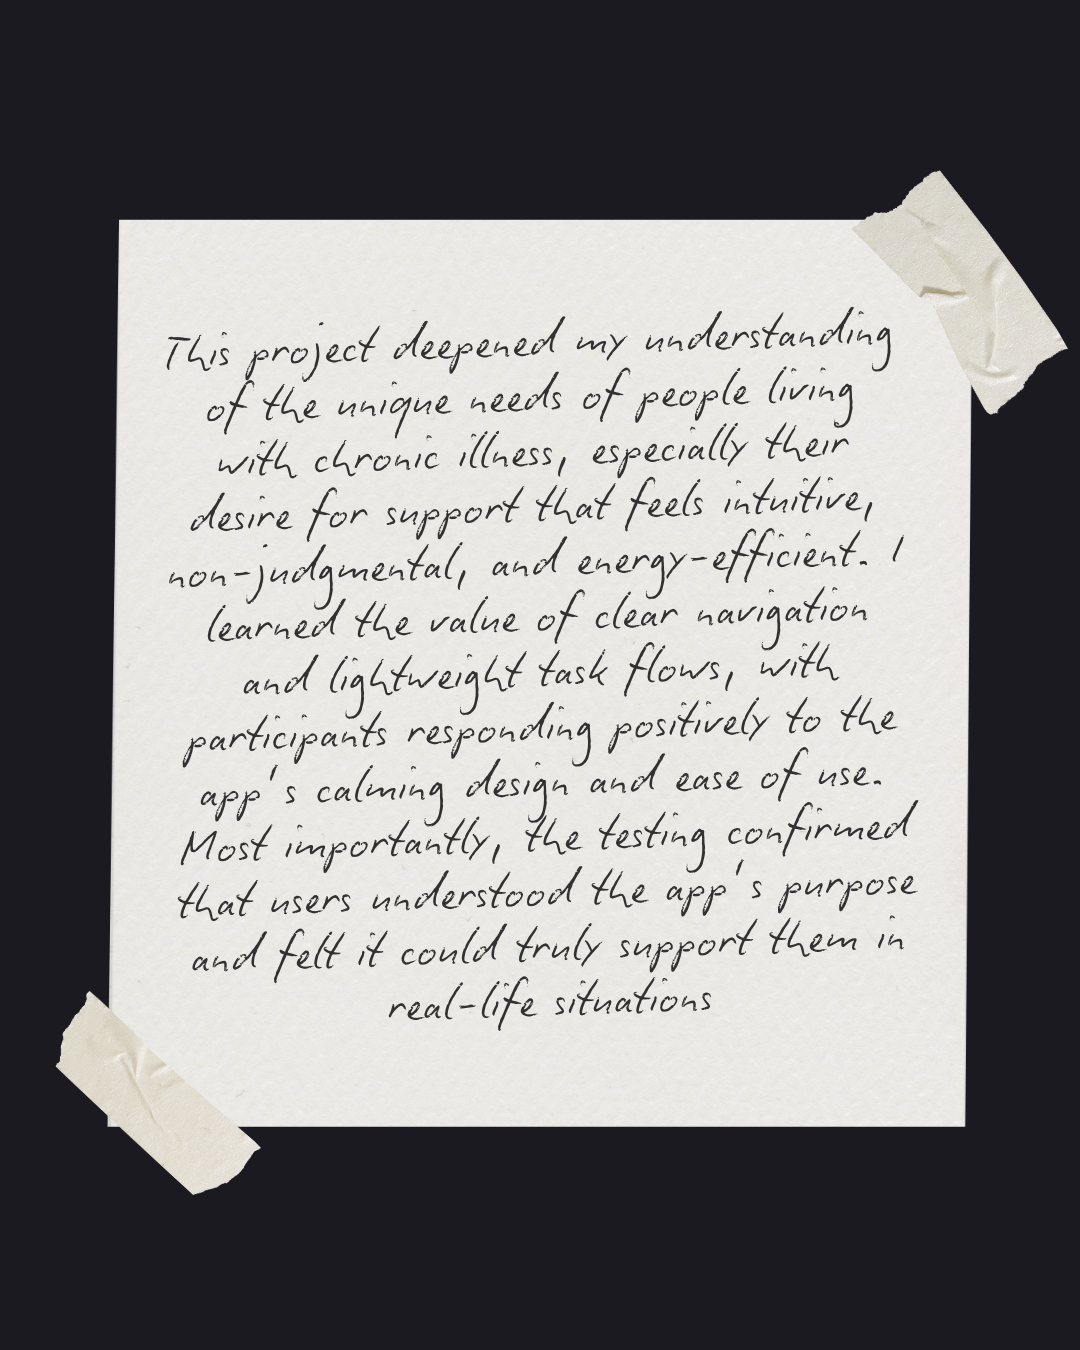 This project deepened my understanding
of the unique needs of people living
with chronic illness, especially their
desire for support that feels intuitive,
non-judgmental, and energy-efficient. I
learned the value of clear navigation
and lightweight task flows, with
participants responding positively to the
app's calming design and ease of use.
Most importantly, the testing confirmed
that users understood the app's purpose
and felt it could truly support them in
real-life situations